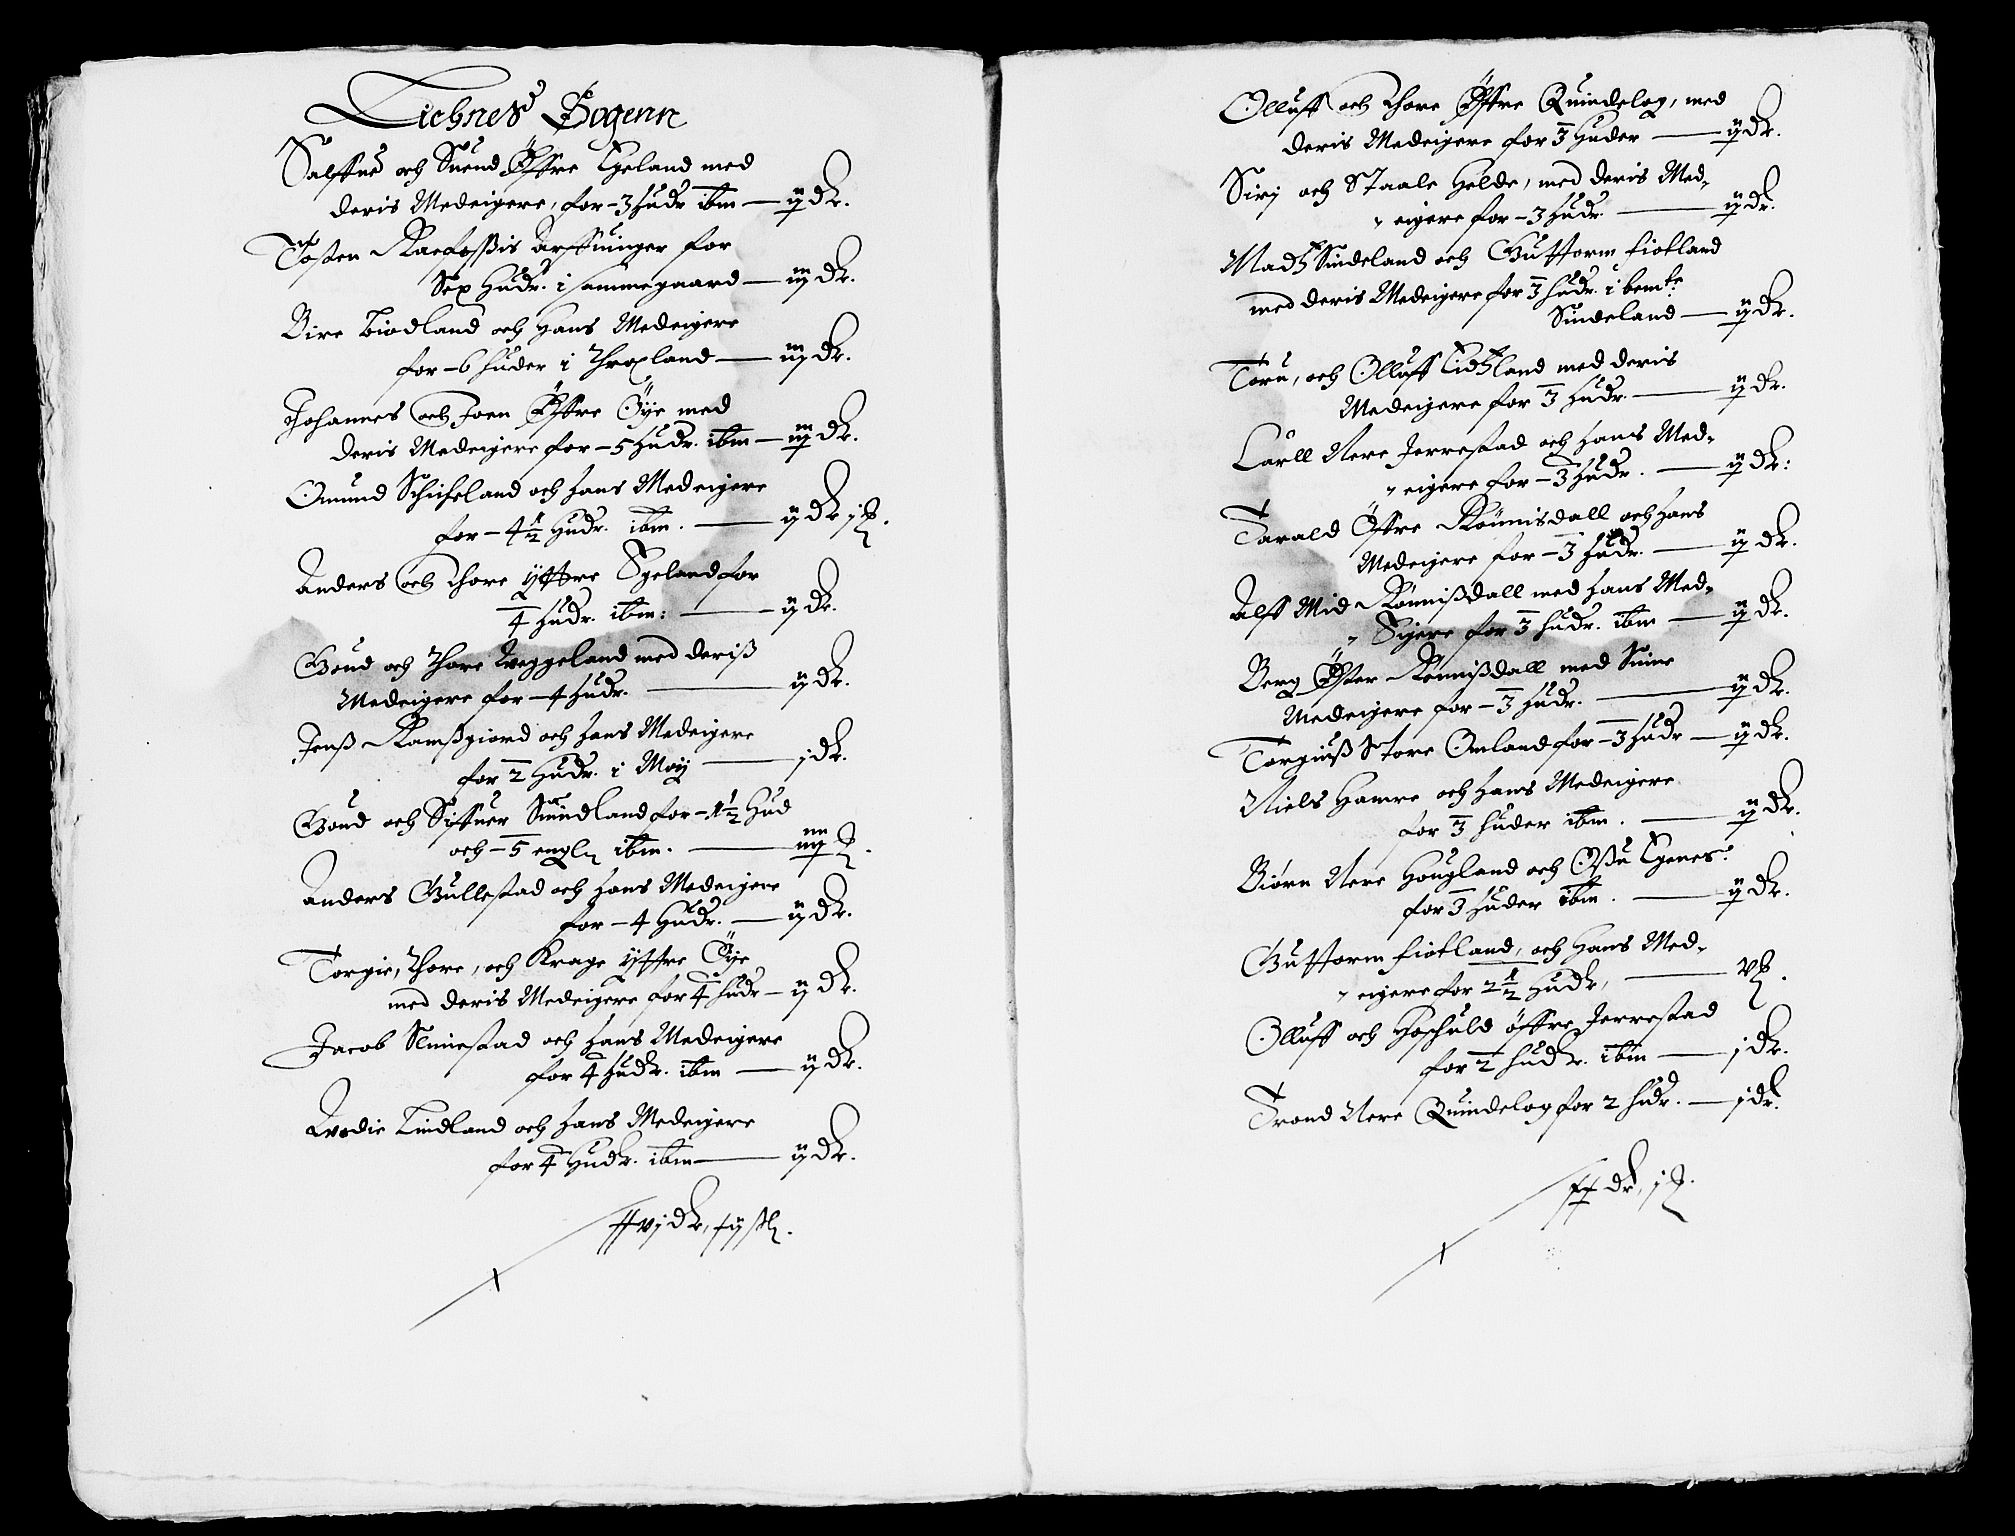 Lichnes Sogenn
Salffue och Suend Øffre Egeland med
deris Medeigere, for - 3 hudr ibm — ij dr.
Tosten Raefossis Arffuinger for
Sex hudr. i sammegaard — iij dr.
Bire Liodland och hans Medeigere
for - 6 huder i Throgland — iij dr.
Johannes och Joen Øffre Øÿe med
deris Medeigere for - 5 hudr. ibm — iij dr.
Omund Schifeland och hans Medeigere
for - 4½ hudr. ibm. — ij dr j
Anders och Thore ÿttre Egeland for
4 hudr. ibm: — ij dr.
Goud och Thore Veggeland med deriß
Medeigere for - 4 hudr. — ij dr.
Jenß Ramßgiord och hans Medeigere
for 2 hudr. i Moÿ — j dr.
Goud och Siffuer Smudland for - 1½ hud
och - 5 engl ibm. — iiij
Anders Gullestad och hans Medeigere
for - 4 hudr. — ij dr.
Torgie, Thore, och Krage ÿttre Øÿe
med deris Medeigere for 4 hudr — ij dr.
Jacob Slimestad och hans Medeigere
for 4 hudr. ibm — ij dr.
Vodie Lindland och hans Medeigere
for 4 hudr. ibm — ij dr.
xxvj dr,
Olluff och Thore Øffre Quindelog, med
deris Medeigere for 3 huder — ij dr.
Sirj och Staale Helde, med deris Med-
eigere for - 3 hudr. — ij dr.
Madtz Sindeland och Guttorm fiotland
med deris Medeigere for 3 hudr. i bemte
Sindeland — ij dr.
Toru, och Olluff Eidtzland med deris
Medeigere for 3 hudr. — ij dr.
Carll Nere Jerrestad och hans Med-
eigere for - 3 hudr. — ij dr:
Tarald Øffre Rönnisdall och hans
Medeigere for - 3 hudr. — ij dr.
Alff Mid Rönnißdall med hans Med-
Eigere for 3 hudr. ibm — ij dr.
Berg Øster Rönnißdall med Sinne
Medeigere for - 3 hudr. — ij dr.
Torgiuß Store Omland for - 3 hudr — ij dr.
Niels Hamre och hans Medeigere
for 3 huder ibm. — ij dr.
Biørn Nere Hougland och Oßu Egenes
for 3 huder ibm. — ij dr.
Guttorm fiotland, och hans Med-
eigere for 2½ hudr,
Olluff och Hoschuld öffre Jerrestad
for 2 hudr. ibm — j dr.
Trond Nere Quindelog for 2 hudr. — j dr.
dr, j